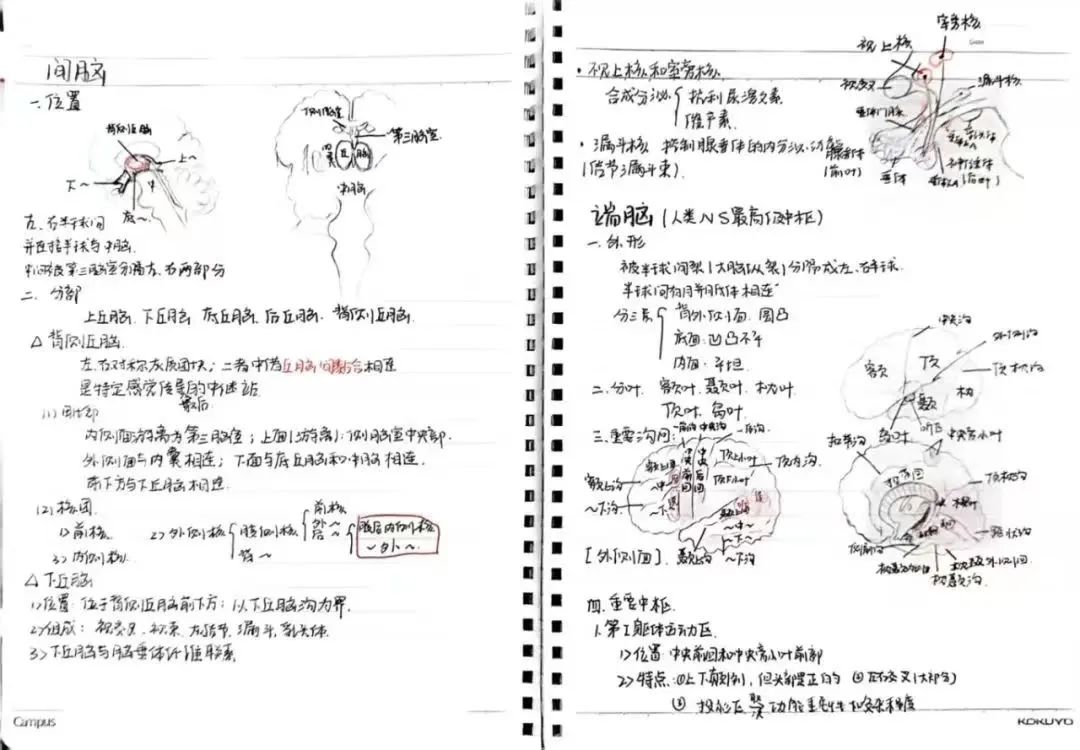 间脑
一、位置
背侧丘脑
上～
下～
中
底～
侧脑室
第三脑室
内囊
丘
脑
中脑
左、右半球间
并连接半球与中脑.
中间被第三脑室分隔左、右两部分
二、分部
上丘脑、下丘脑、底丘脑、后丘脑、背侧丘脑.
△ 背侧丘脑.
左、右对称灰质团块；二者中借丘脑间黏合相连
是特定感觉传导的中继站
最后
(1) 毗邻
内侧面游离为第三脑室；上面(游离)：侧脑室中央部.
外侧面与内囊相连；下面与底丘脑和中脑相连.
前下方与下丘脑相连.
(2) 核团
1> 前核.
2> 外侧核
腹侧核
背～
前核
外～
后～
腹后内侧核
～外～
3> 内侧核.
△ 下丘脑
1> 位置：位于背侧丘脑前下方；以下丘脑沟为界.
2> 组成：视交叉、视束、灰结节、漏斗、乳头体.
3> 下丘脑与脑垂体纤维联系
Campus
·视上核和室旁核
合成分泌
抗利尿激素
催产素.
·漏斗核 控制腺垂体的内分泌功能
(结节漏斗束).
室旁核
视上核
视交叉
漏斗核
垂体门脉
乳头体
腺垂体
(前叶)
垂体
神经垂体
(后叶)
端脑 (人类NS最高级中枢)
一、外形
被半球间裂(大脑纵裂)分隔成左、右半球.
半球间有胼胝体相连
分三面
背外侧面：圆凸
底面：凹凸不平
内面：平坦
二、分叶. 额叶、颞叶、枕叶
顶叶、岛叶.
中央沟
外侧沟
顶枕沟
额
顶
枕
颞
岛叶
三、重要沟回：
～前沟
中央沟
～后沟
额上回
～中～
～下～
中央前回
中央后回
顶上小叶
顶下小叶
顶内沟
额上沟
～下沟
颞上回
～中～
～下～
颞上沟
～下沟
[外侧面].
扣带沟
中央旁小叶
扣带回
顶枕沟
枕叶
距状沟
侧副沟
枕颞沟
四、重要中枢.
1. 第Ⅰ躯体运动区.
1> 位置：中央前回和中央旁小叶前部
2> 特点：①上下颠倒，但头部是正的 ②左右交叉(大部分)
③ 投影区取决功能重要性和复杂程度
KOKUYO